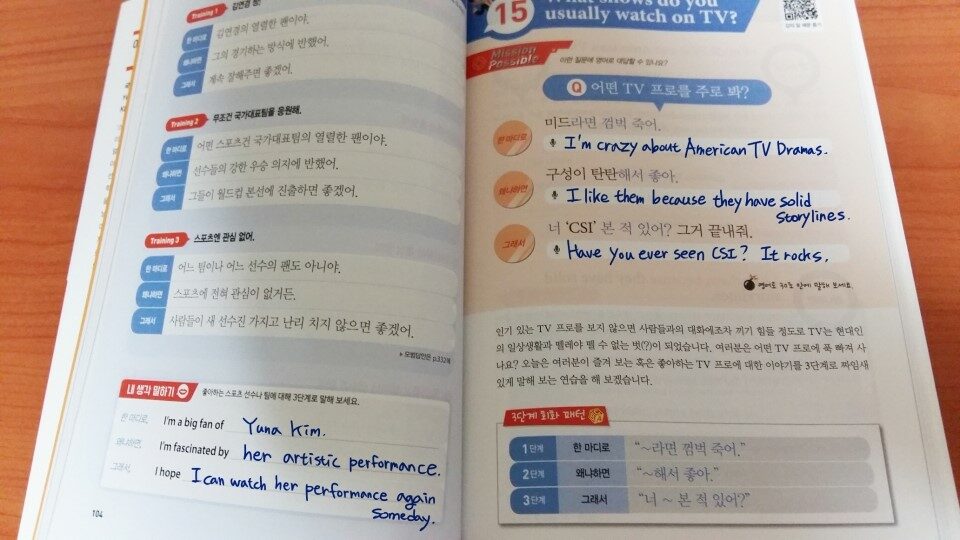 Training 1
김연경 짱!
한 마디로
김연경의 열렬한 팬이야.
왜냐하면
그의 경기하는 방식에 반했어.
그래서
계속 잘해주면 좋겠어.
Training 2
무조건 국가대표팀을 응원해.
한 마디로
어떤 스포츠건 국가대표팀의 열렬한 팬이야.
왜냐하면
선수들의 강한 우승 의지에 반했어.
그래서
그들이 월드컵 본선에 진출하면 좋겠어.
Training 3
스포츠엔 관심 없어.
한 마디로
어느 팀이나 어느 선수의 팬도 아니야.
왜냐하면
스포츠에 전혀 관심이 없거든.
그래서
사람들이 새 선수진 가지고 난리 치지 않으면 좋겠어.
▶ 모범답안은 p.332에
내 생각 말하기
좋아하는 스포츠 선수나 팀에 대해 3단계로 말해 보세요.
한 마디로, I'm a big fan of Yuna Kim.
왜냐하면, I'm fascinated by her artistic performance.
그래서, I hope I can watch her performance again
someday.
104
15
What shows do you
usually watch on TV?
Mission
Possible
이런 질문에 영어로 대답할 수 있나요?
Q 어떤 TV 프로를 주로 봐?
한 마디로
미드라면 껌벅 죽어.
I'm crazy about American TV Dramas.
왜냐하면
구성이 탄탄해서 좋아.
I like them because they have solid
storylines.
그래서
너 ‘CSI’ 본 적 있어? 그거 끝내줘.
Have you ever seen CSI? It rocks.
영어로 30초 안에 말해 보세요.
인기 있는 TV 프로를 보지 않으면 사람들과의 대화에조차 끼기 힘들 정도로 TV는 현대인
의 일상생활과 뗄레야 뗄 수 없는 벗(?)이 되었습니다. 여러분은 어떤 TV 프로에 푹 빠져 사
나요? 오늘은 여러분이 즐겨 보는 혹은 좋아하는 TV 프로에 대한 이야기를 3단계로 짜임새
있게 말해 보는 연습을 해 보겠습니다.
3단계 회화 패턴
1단계 한 마디로 “~라면 껌벅 죽어.”
2단계 왜냐하면 “~해서 좋아.”
3단계 그래서 “너 ~ 본 적 있어?”